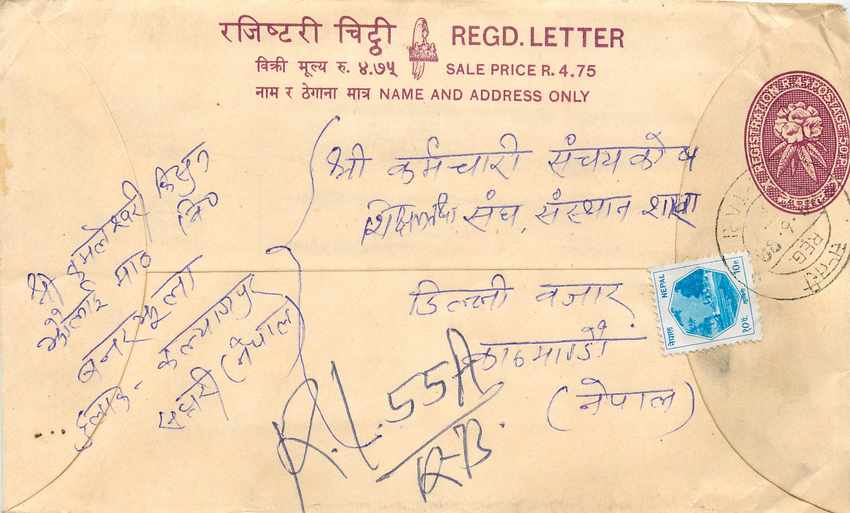 रजिष्टरी चिट्ठी REGD. LETTER
विक्री मूल्य रु. ४.७५ SALE PRICE R. 4.75
नाम र ठेगाना मात्र NAME AND ADDRESS ONLY
REGISTRATION POSTAGE
श्री कर्मचारी संचय कोष
संघ, संस्थान शाखा
डिल्ली बजार
काठमाण्डौ
(नेपाल)
नेपाल NEPAL
१०पै. 10P.
REG
श्री
बनरझुला
कल्याणपुर
(नेपाल)
R.L. 551
R.B.